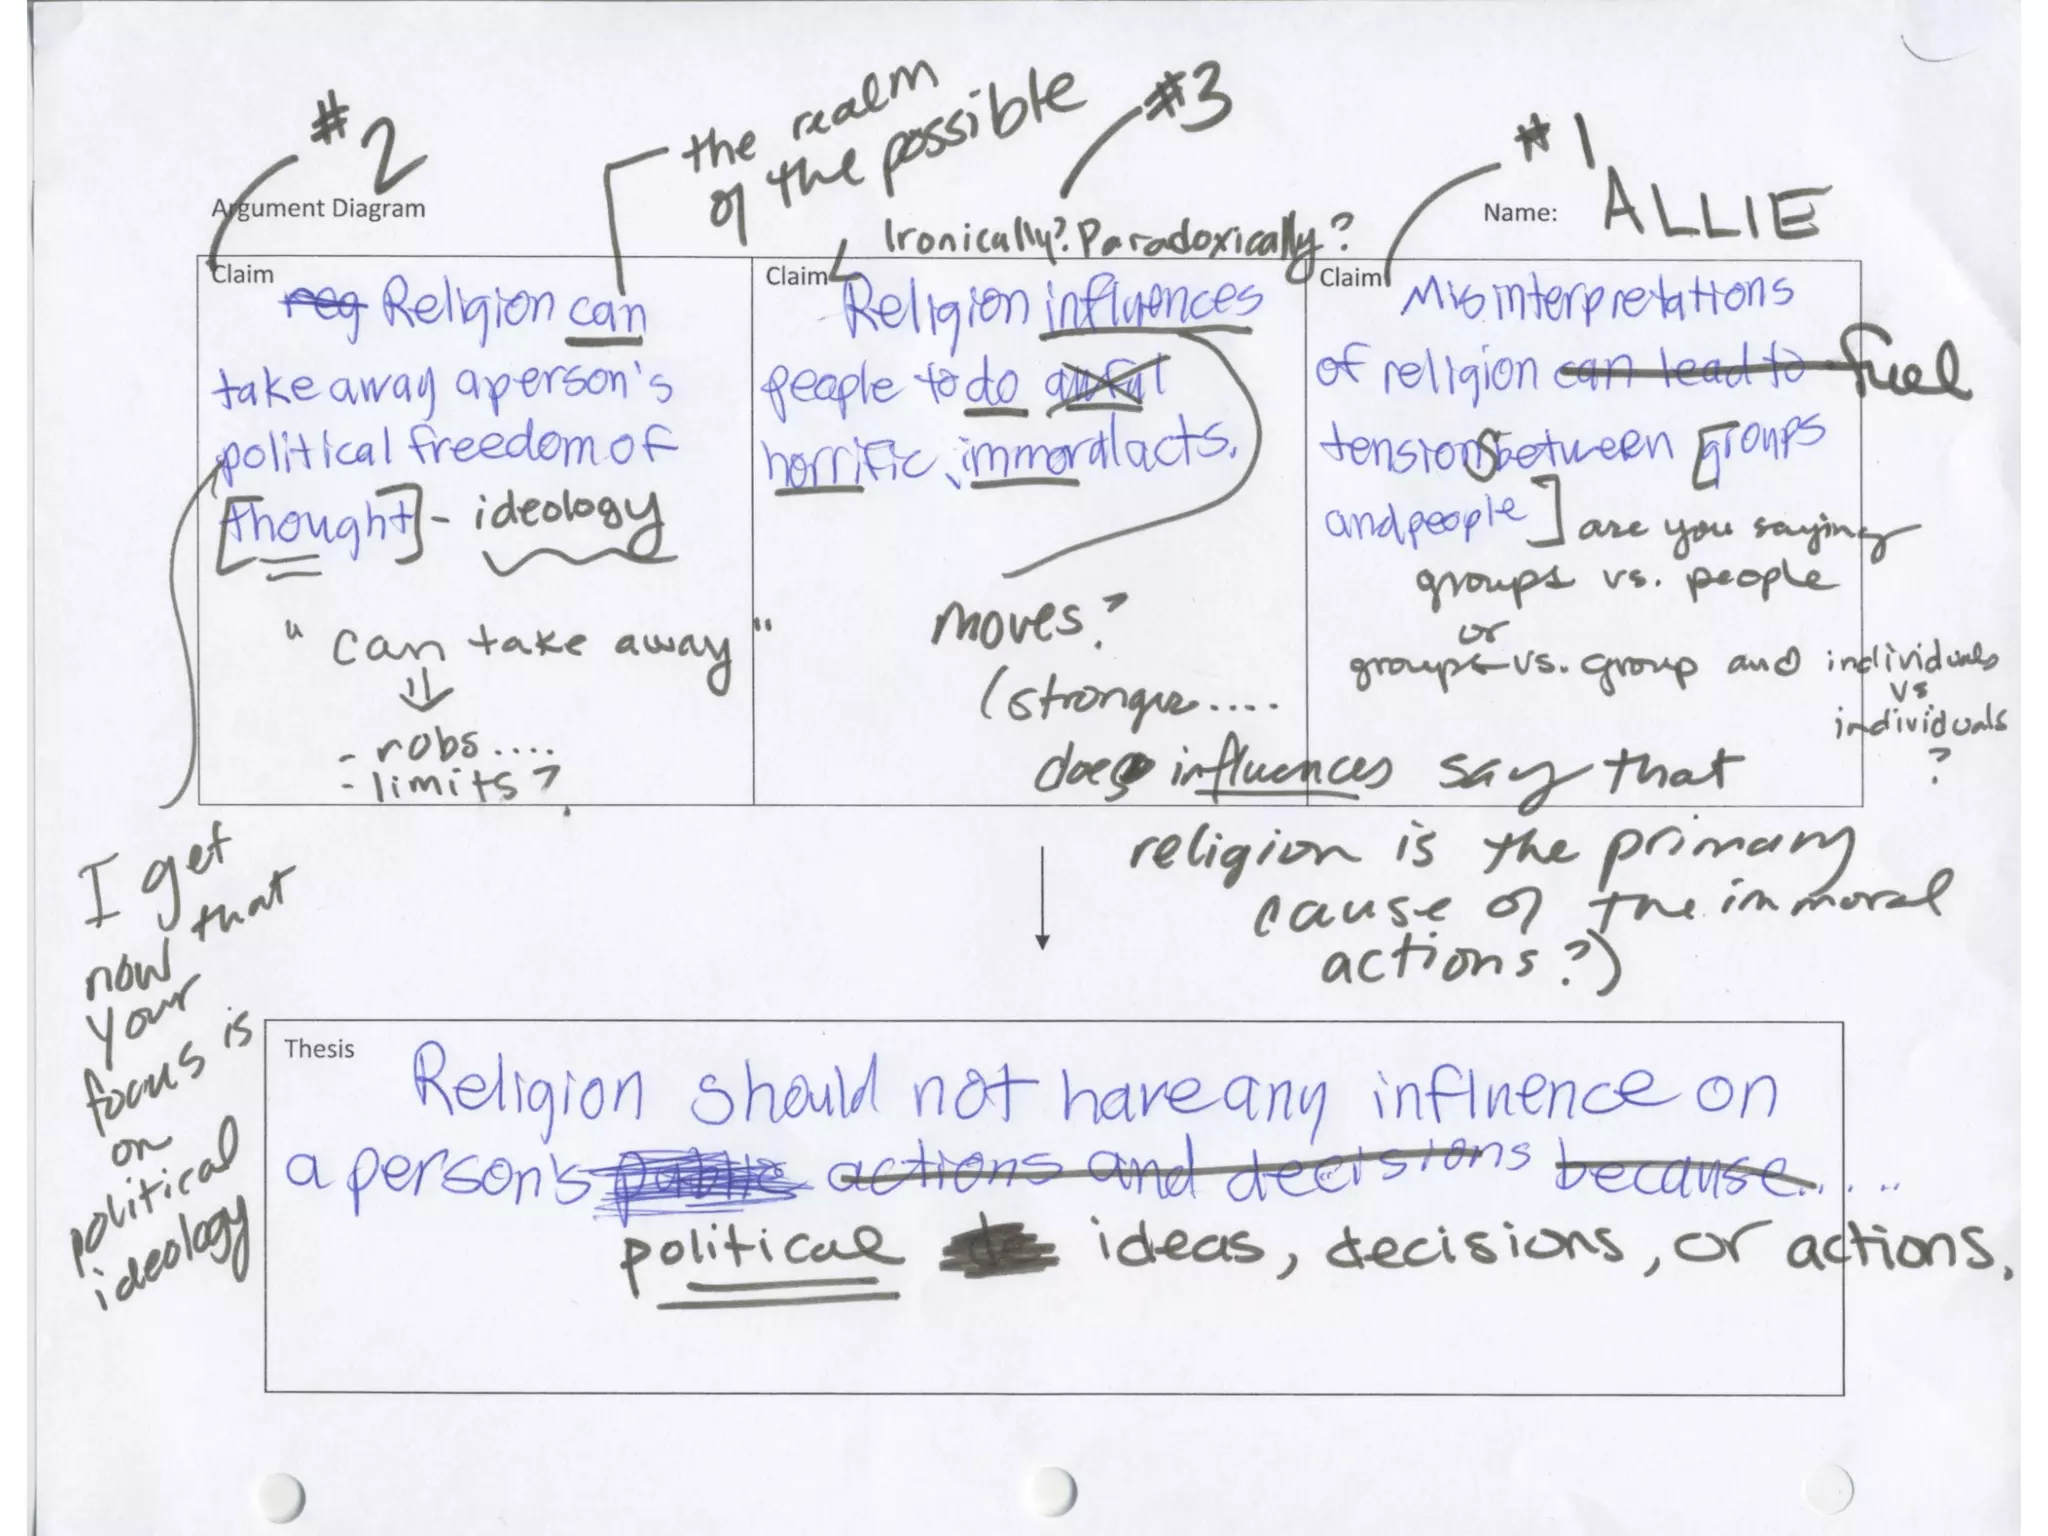 #2
the realm
of the possible
#3
#1
Argument Diagram
Name: ALLIE
Ironically? Paradoxically?
Claim
reg Religion can
take away a person's
political freedom of
[thought] - ideology
"can take away"
- robs....
- limits?
Claim
Religion influences
people to do awful
horrific, immoral acts.
moves?
(stronger....
does influences say that
religion is the primary
cause of the immoral
actions?)
Claim
Misinterpretations
of religion can lead to fuel
tensions between [groups
and people] are you saying
groups vs. people
or
groups vs. group and individuals
vs
individuals
?
I get
now that
your
focus is
on
political
ideology
Thesis
Religion should not have any influence on
a person's public actions and decisions because.....
political ideas, decisions, or actions.